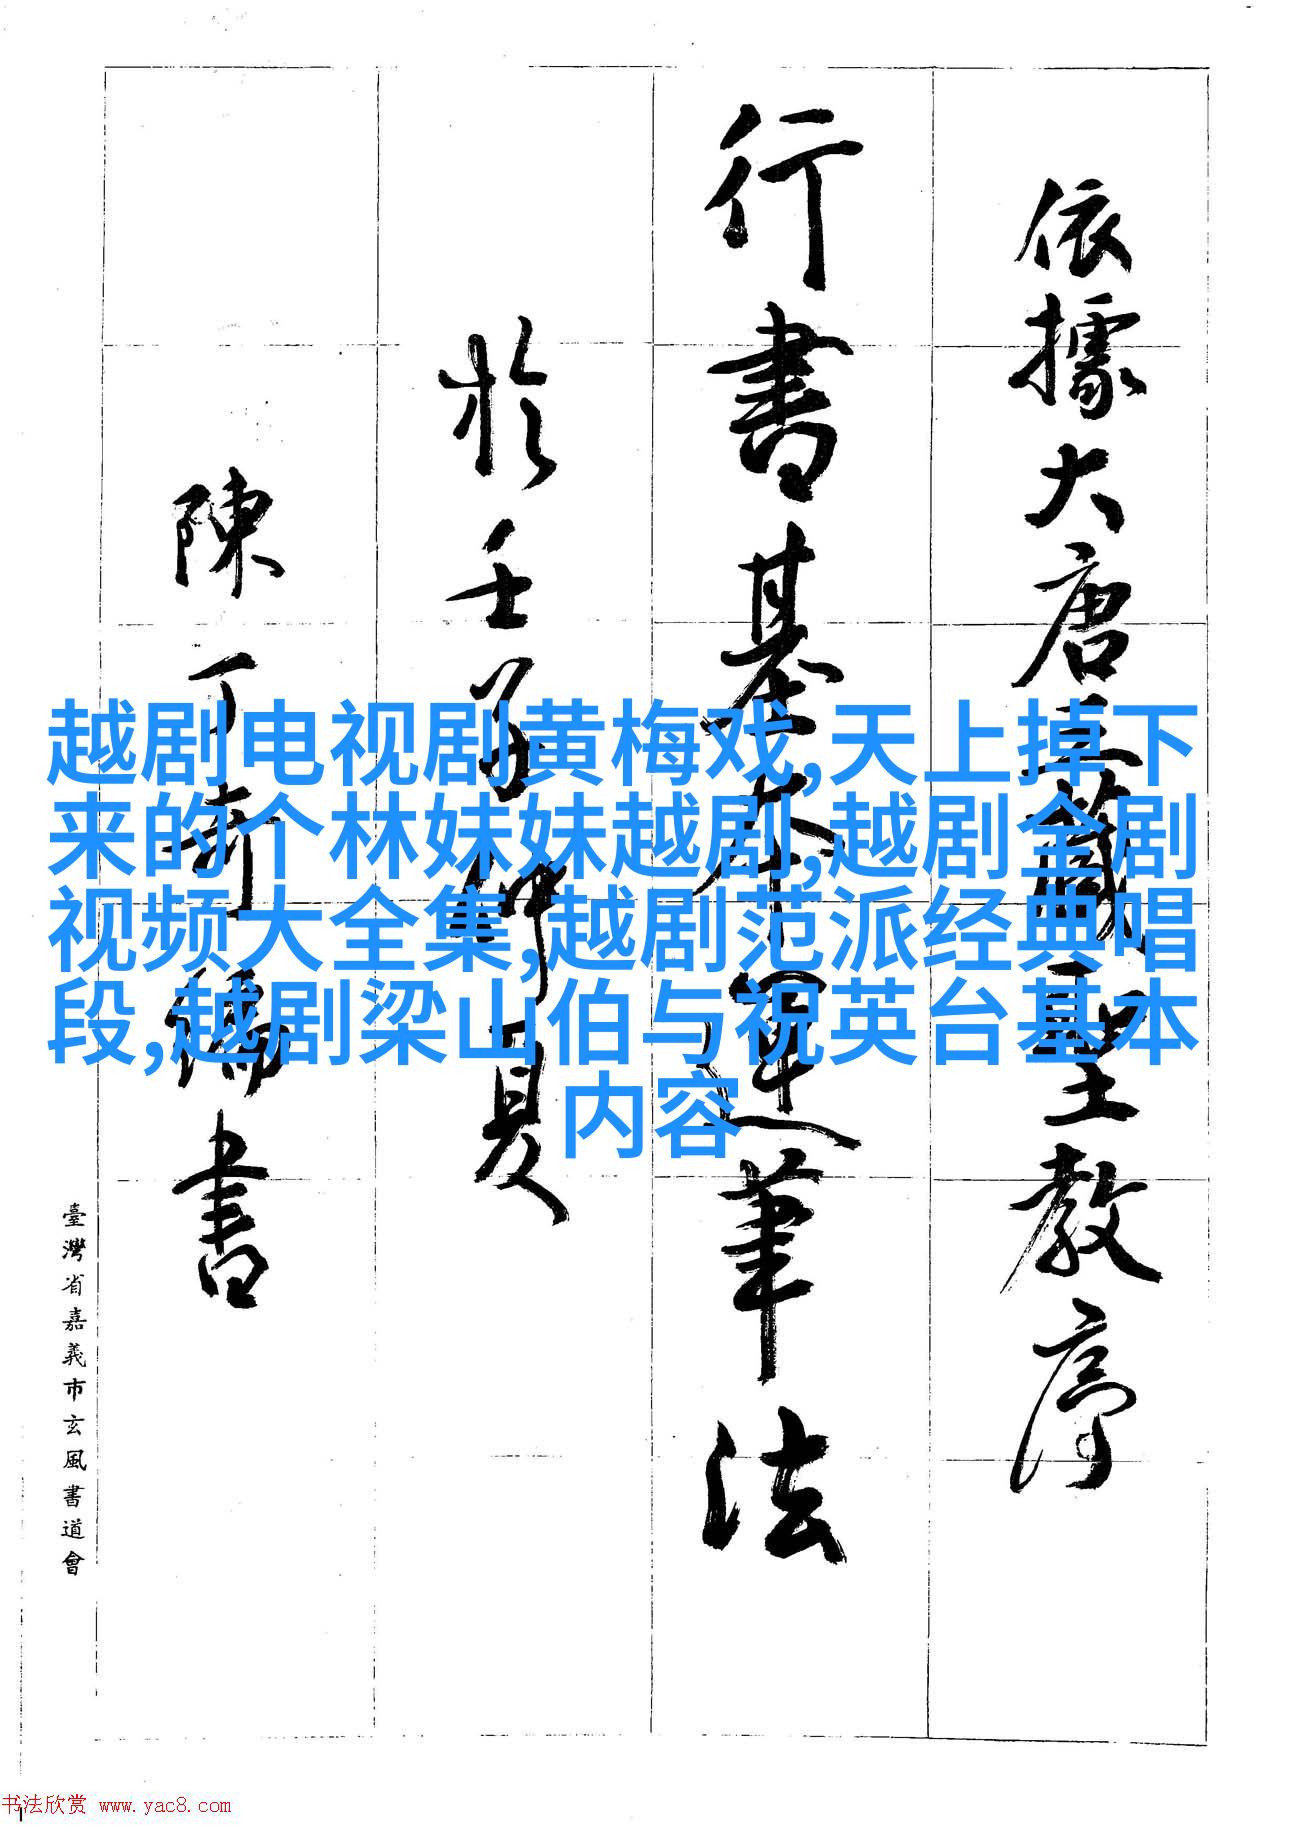 依據大唐三藏聖教序
行書基本運筆法
於壬子仲夏
陳丁奇編書
臺灣省嘉義市玄風書道會
越剧电视剧黄梅戏,天上掉下
来的个林妹妹越剧,越剧全剧
视频大全集,越剧范派经典唱
段,越剧梁山伯与祝英台基本
内容
书法欣赏 www.yac8.com
1